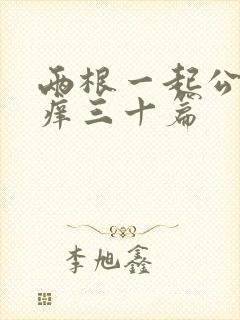 两根一起公
痒三十篇
李旭鑫